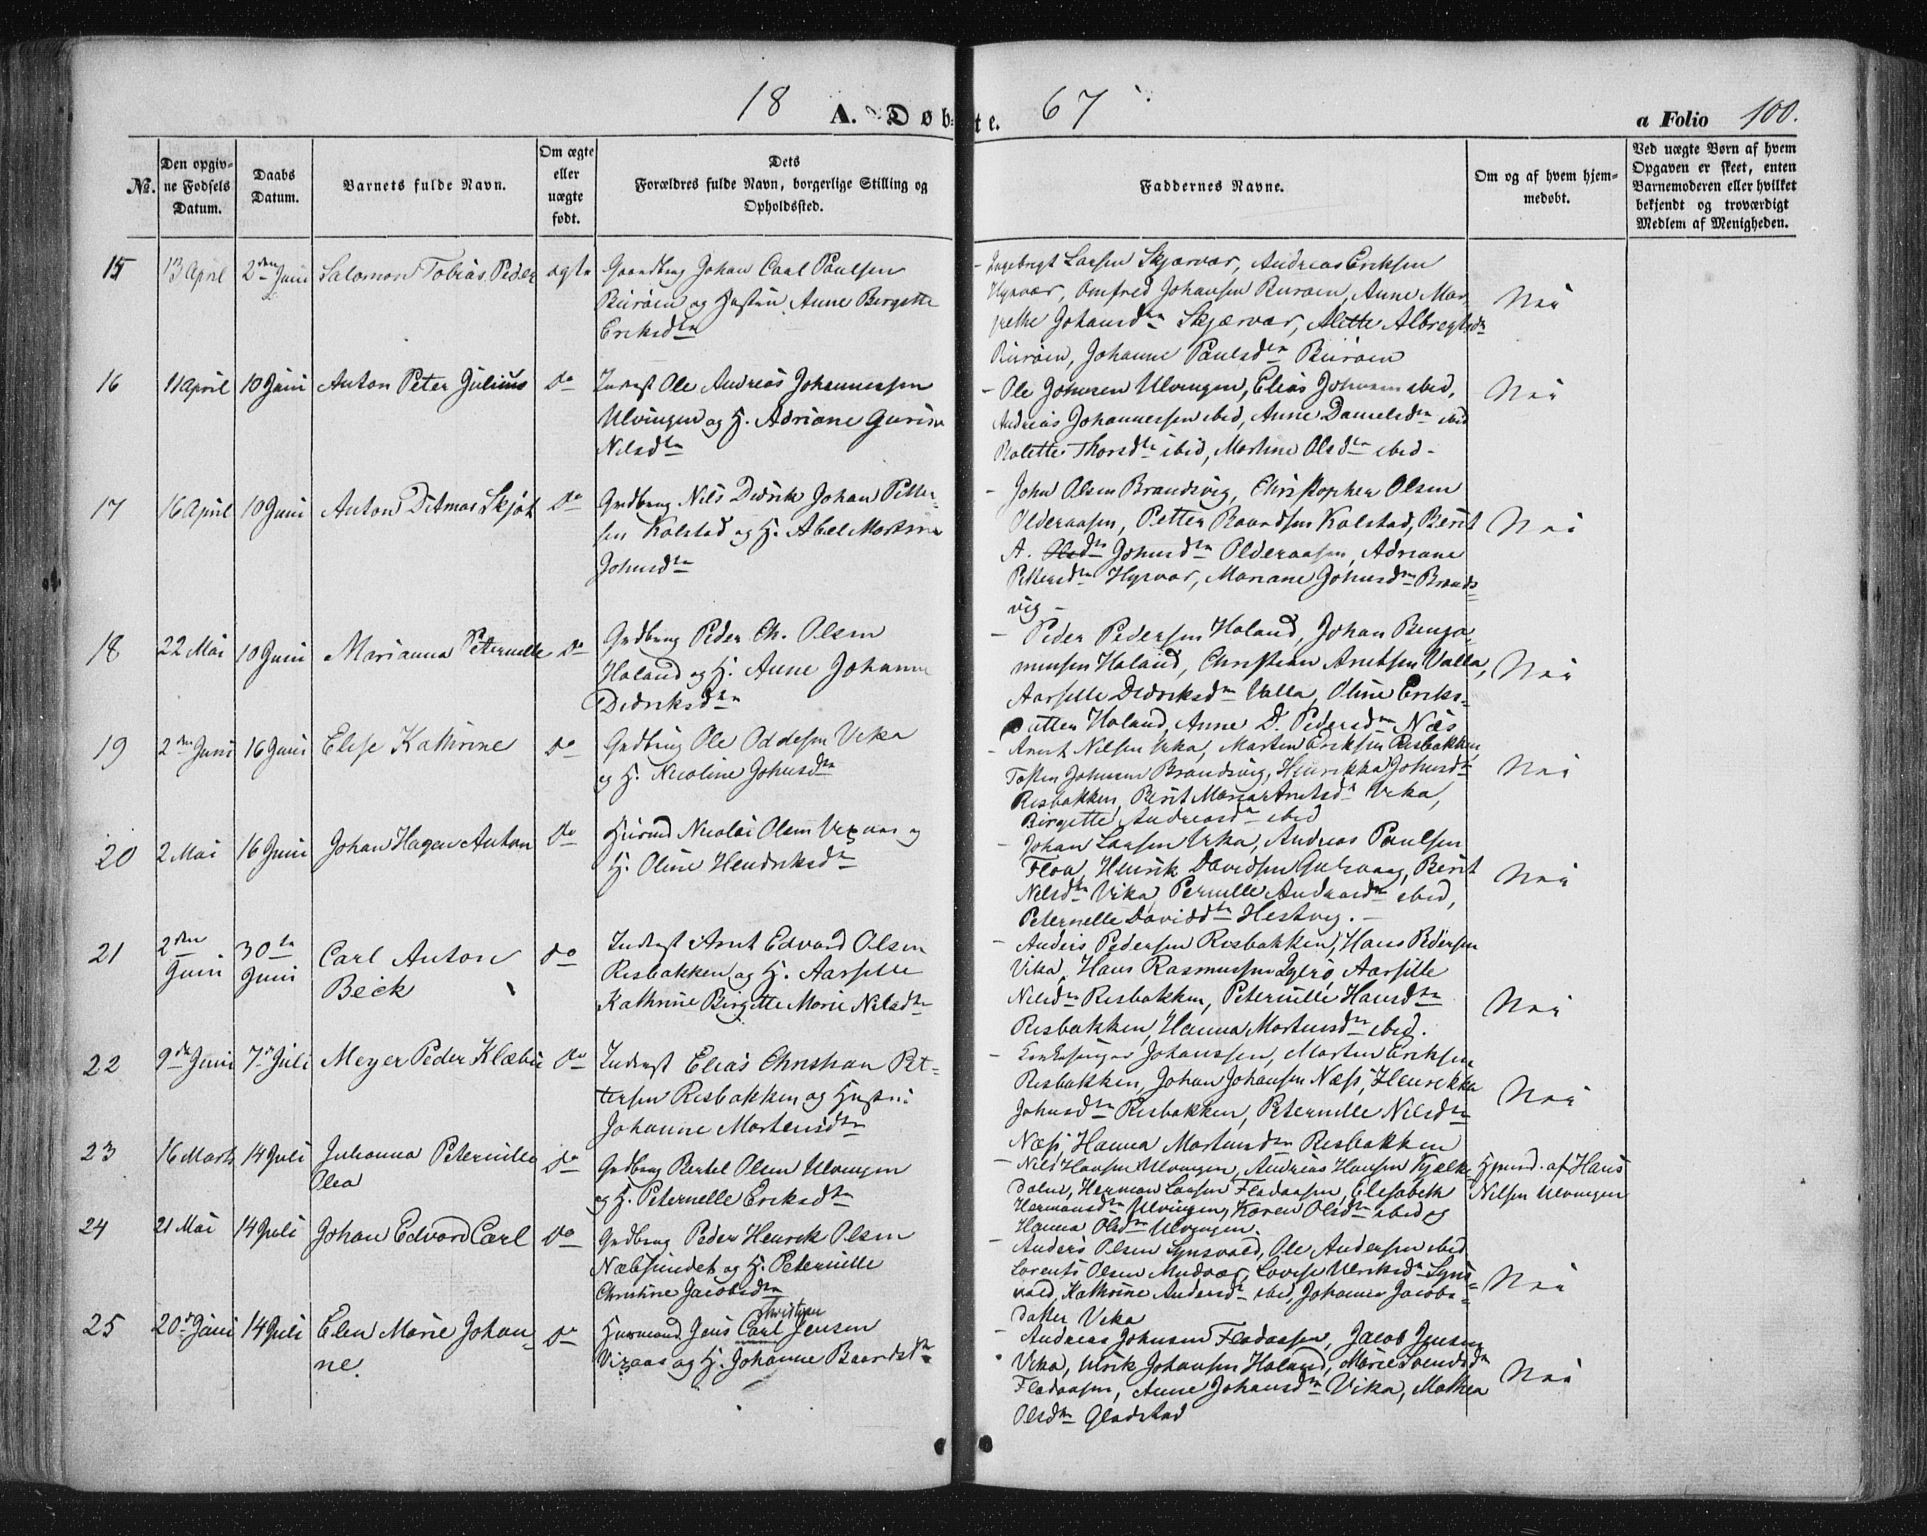 18 A. Døbte. 67
a Folio 100.
No.
Den opgivne Fødsels Datum.
Daabs Datum.
Barnets fulde Navn.
Om ægte eller uægte født.
Dets Forældres fulde Navn, borgerlige Stilling og Opholdssted.
Faddernes Navne.
Om og af hvem hjemmedøbt.
Ved uægte Børn af hvem Opgaven er skeet, enten Barnemoderen eller hvilket bekjendt og troværdigt Medlem af Menigheden.
15 13 April 2den Juni Salomon Tobias Peder ægte Gaardbrug Johan Carl Paulsen
Rurøen og Hustru Anne Birgette
Eriksdtr
Ingebrigt Larsen Skjærvær, Andreas Eriksen
Hysvær, Amfred Johansen Rurøen, Anne Mar-
grethe Johansdtr Skjærvær, Alette Albregtsdtr
Rurøen, Johanne Paulsdtr Rurøen
Nei
16 11 April 10 Juni Anton Peter Julius do Inderst Ole Andreas Johannessen
Ulvingen og H. Adriane Gurine
Nilsdtr
Ole Johnsen Ulvingen, Elias Johnsen ibid,
Andreas Johannessen ibid, Anne Danielsdtr ibid
Ralette Thorsdtr ibid, Martine Olsdtr ibid-
Nei
17 16 April 10 Juni Anton Ditmar Skjøt do Grdbrug Nils Didrik Johan Petter-
sen Kolstad og H. Abel Martine
Johnsdtr
John Olsen Brandsvig, Christopher Olsen
Olderaasen, Petter Baardsen Kolstad, Berit
A. Johnsdtr Olderaasen, Adriane
Pettersdtr Hysvær, Mariane Johnsdtr Brands-
vig-
Nei
18 22 Mai 10 Juni Marianna Peternelle do Grdbrug Peder Ch. Olsen
Holand og H. Anne Johanne
Didriksdtr
Peder Pedersen Holand, Johan Benja-
minsen Holand, Christian Arntsen Valla,
Aarselle Didriksdtr Valla, Oline Eriks-
datter Holand, Anne D. Pedersdtr Næs
Nei
19 2den Juni 16 Juni Elise Kathrine do Grdbrug Ole Oddesen Vika
og H. Nicoline Johnsdtr
Arnt Nilsen Vika, Morten Eriksen Risbakken,
Tosten Johnsen Brandsvig, Henrikka Johnsdtr
Risbakken, Berit Maria Arntsdtr Vika,
Birgette Andreasdtr ibid
Nei
20 2 Mai 16 Juni Johan Hagen Anton do Husmd Nicolai Olsen Vizaas og
H. Oline Hendriksdtr
Johan Larsen Vika, Andreas Paulsen
Floa, Henrik Davidsen Gulsvaag, Berit
Nilsdtr Vika, Pernille ibid,
Peternelle Daviddtr Hestvig.-
Nei
21 2den Juni 30te Juni Carl Anton
Beck do Inderst Arnt Edvard Olsen
Risbakken og H. Aarselle
Kathrine Birgitte Marie Nilsdtr
Anders Pedersen Risbakken, Hans Pedersen
Vika, Hans Rasmussen Igerø, Aarsille
Nilsdtr Risbakken, Peternille Hansdtr
Risbakken, Hanna Mortensdtr ibid.
Nei
22 9de Juni 7de Juli Meyer Peder Klæbu do Inderst Elias Christian Pet-
tersen Risbakken og Hustru
Johanne Mortensdtr
Johanssen, Morten Eriksen
Risbakken, Johan Johansen Næss, Henrikka
Johnsdtr Risbakken, Peternille Nilsdtr
Næss, Hanna Mortensdtr Risbakken
Nei
23 16 Marts 14 Juli Juhanna Peternille
Olea do Grdbrug Bertel Olsen Ulvingen
og H. Peternelle Eriksdtr
Nils Hansen Ulvingen, Andreas Hansen Kjælk-
dalen, Herman Larsen Fladaasen, Elisabeth
Hermansdtr Ulvingen, Karen Olsdtr ibid og
Hanna Olsdtr Ulvingen.
Hjemd. af Hans
Nilsen Ulvingen
24 21 Mai 14 Juli Johan Edvard Carl do Grdbrug Peder Henrik Olsen
Næbsundet og H. Peternille
Christine Jacobsdtr
Anders Olsen Synsvald, Ole Andersen ibid
Lorents Olsen Mudvær, Lovise Ulriksdtr Syns-
vald, Kathrine Andersdtr ibid, Johanna Jacobs-
datter Vika
Nei
25 20de Juni 14 Juli Elen Marie Johan-
ne. do Husmand Jens Carl Christian Jensen
Vizaas og H. Johanne Baardsdtr
Andreas Johnsen Fladaasen, Jacob Jensen
Vika, Ulrik Johansen Holand, Marie Svendsdtr
Fladaasen, Anne Johansdtr Vika, Mathea
Olsdtr Gladstad
Nei